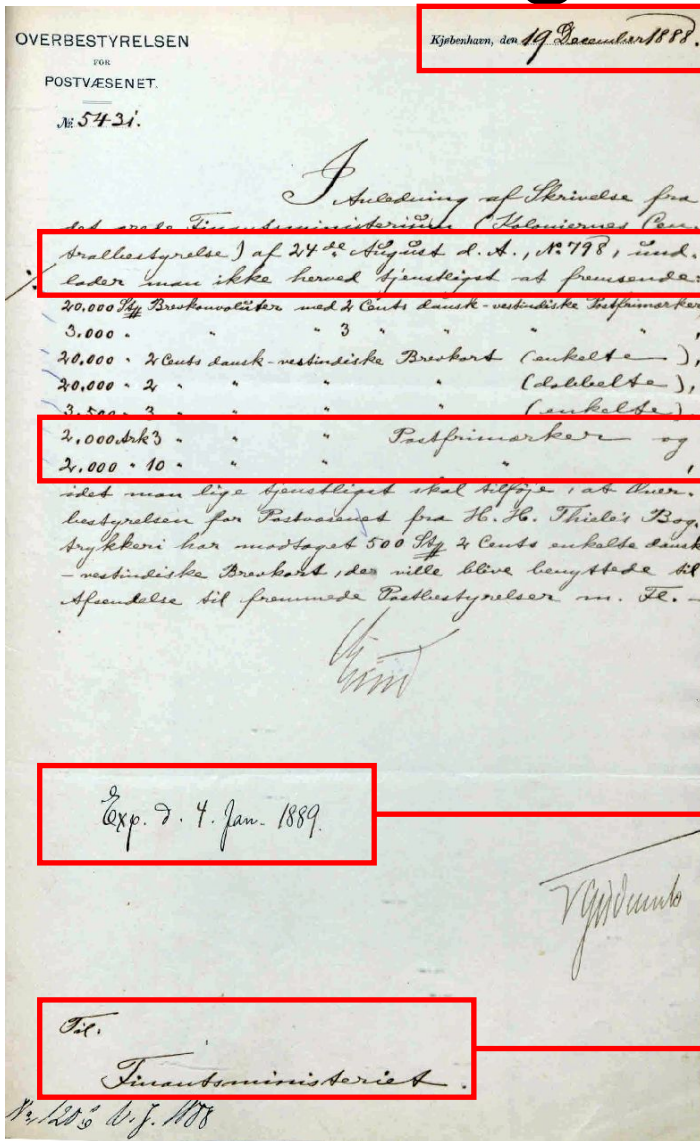 OVERBESTYRELSEN
FOR
POSTVÆSENET.
№ 5431.
Kjøbenhavn, den 19 December 1888.
I Anledning af Skrivelse fra
det ærede Finantsministerium (Koloniernes Cen-
tralbestyrelse) af 24de August d. A., № 798, und-
lader man ikke herved tjenstligst at fremsende:
20.000 Stk Brevkonvoluter med 2 Cents dansk-vestindiske Postfrimærker
3.000 " " 3 " " " " ,
20.000 " 2 Cents dansk-vestindiske Brevkort (enkelte),
20.000 " 2 " " " (dobbelte),
3.500 " 3 " " " (enkelte)
2.000 Ark 3 " " " Postfrimærker og
2.000 " 10 " " " " ,
idet man lige tjenstligst skal tilføje, at Over-
bestyrelsen for Postvæsenet fra H. H. Thiele's Bog-
trykkeri har modtaget 500 Stk 2 Cents enkelte dansk
-vestindiske Brevkort, der ville blive benyttede til
Afsendelse til fremmede Postbestyrelser m. Fl. -
Exp. d. 4. Jan. 1889.
Til.
Finantsministeriet.